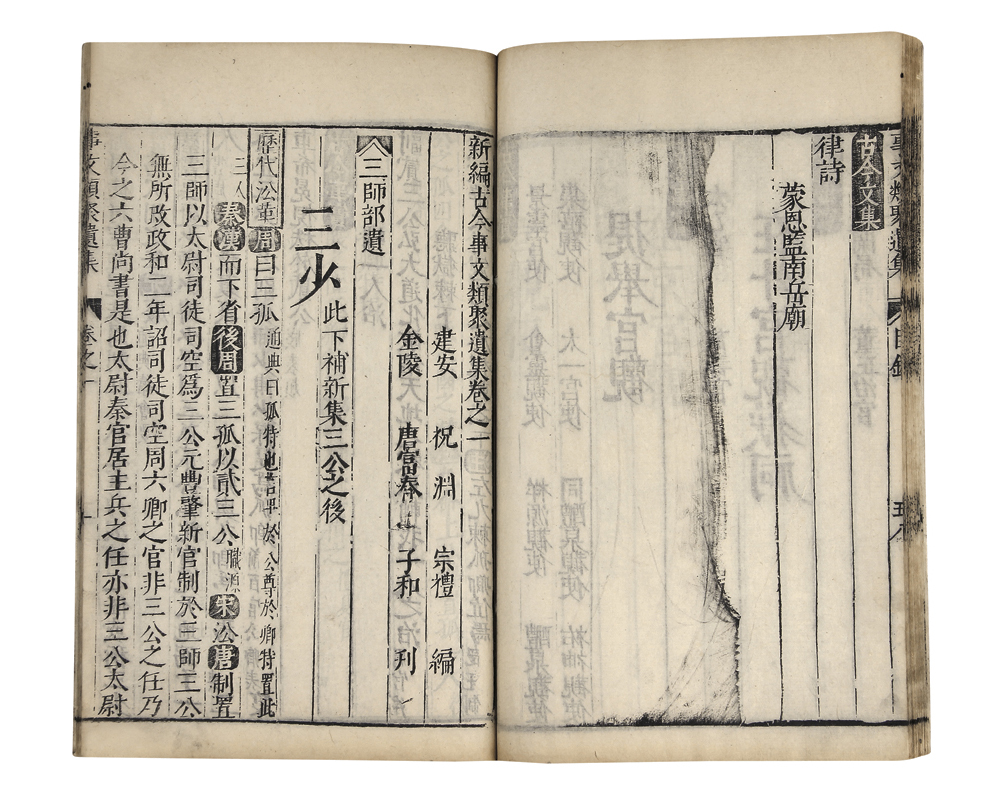 古今文集
律詩
蒙恩監南岳廟
新編古今事文類聚遺集卷之一
建安 祝淵 宗禮 編
金陵 唐富春 子和 刊
三師部遺
三少 此下補新集三公之後
歷代沿革 周曰三孤 通典曰孤特也言卑於公尊於卿特置此
三人 秦漢而下省後周置三孤以貳三公 職源 宋沿唐制置
三師以太尉司徒司空為三公元豐肇新官制於三師三公
無所改政和二年詔司徒司空周六卿之官非三公之任乃
今之六曹尚書是也太尉秦官居主兵之任亦非三公太尉